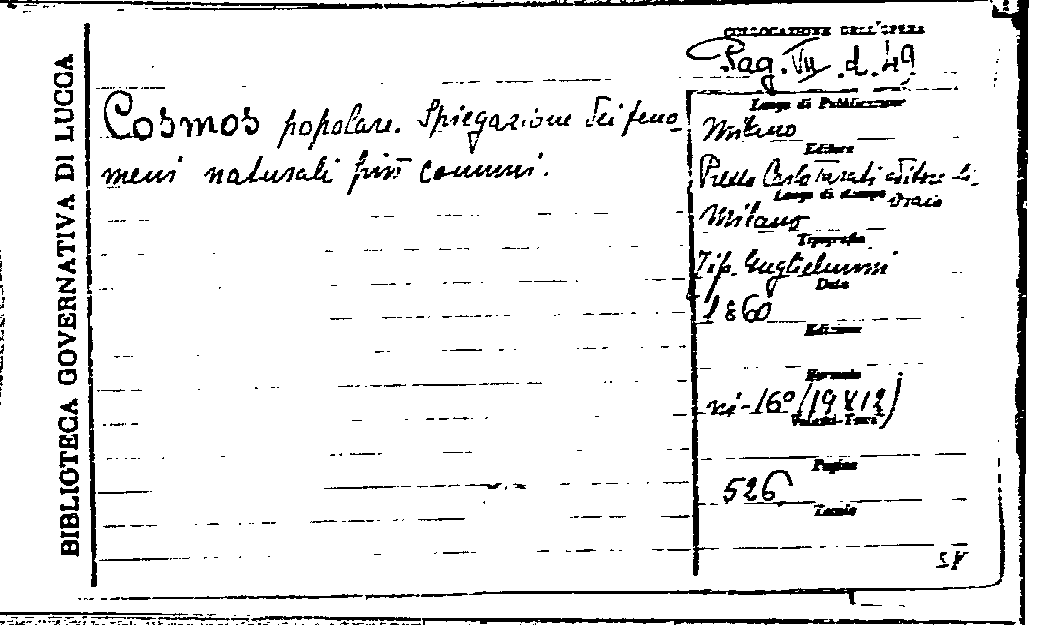 BIBLIOTECA GOVERNATIVA DI LUCCA
COLLOCAZIONE DELL'OPERA
Pag. VII. d. 49
Cosmos popolare. Spiegazione dei feno-
meni naturali più comuni.
Luogo di Pubblicazione
Milano
Editore
Presso Carlo Turati editore li-
braio
Luogo di stampa
Milano
Tipografia
Tip. Guglielmini
Data
1860
Edizione
Formato
in-16º (19X12)
Volumi-Tomi
Pagine
526
Tavole